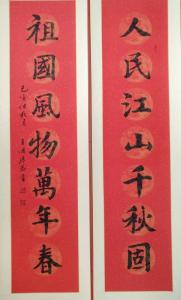 人民江山千秋固
祖國風物萬年春